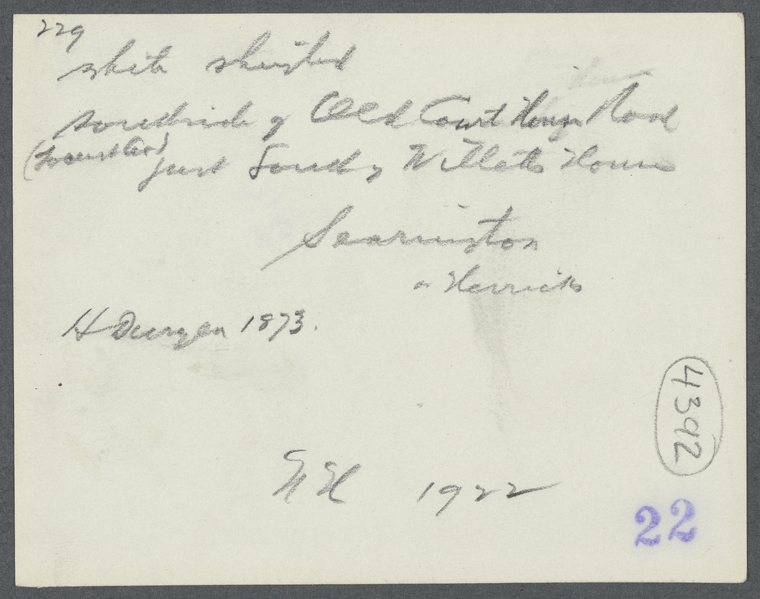 229
white shingled
south side of Old Court House Road
(Locust Ave)
just South of Willets House
Searington
or Herricks
H 1873.
NH 1922
4392
22